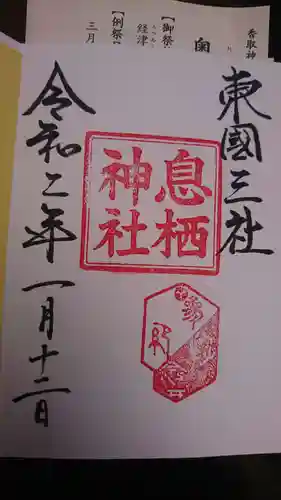 香取神
【御祭
経津
【例祭】
三月
東國三社
息栖
神社
奉
令和二年一月十二日